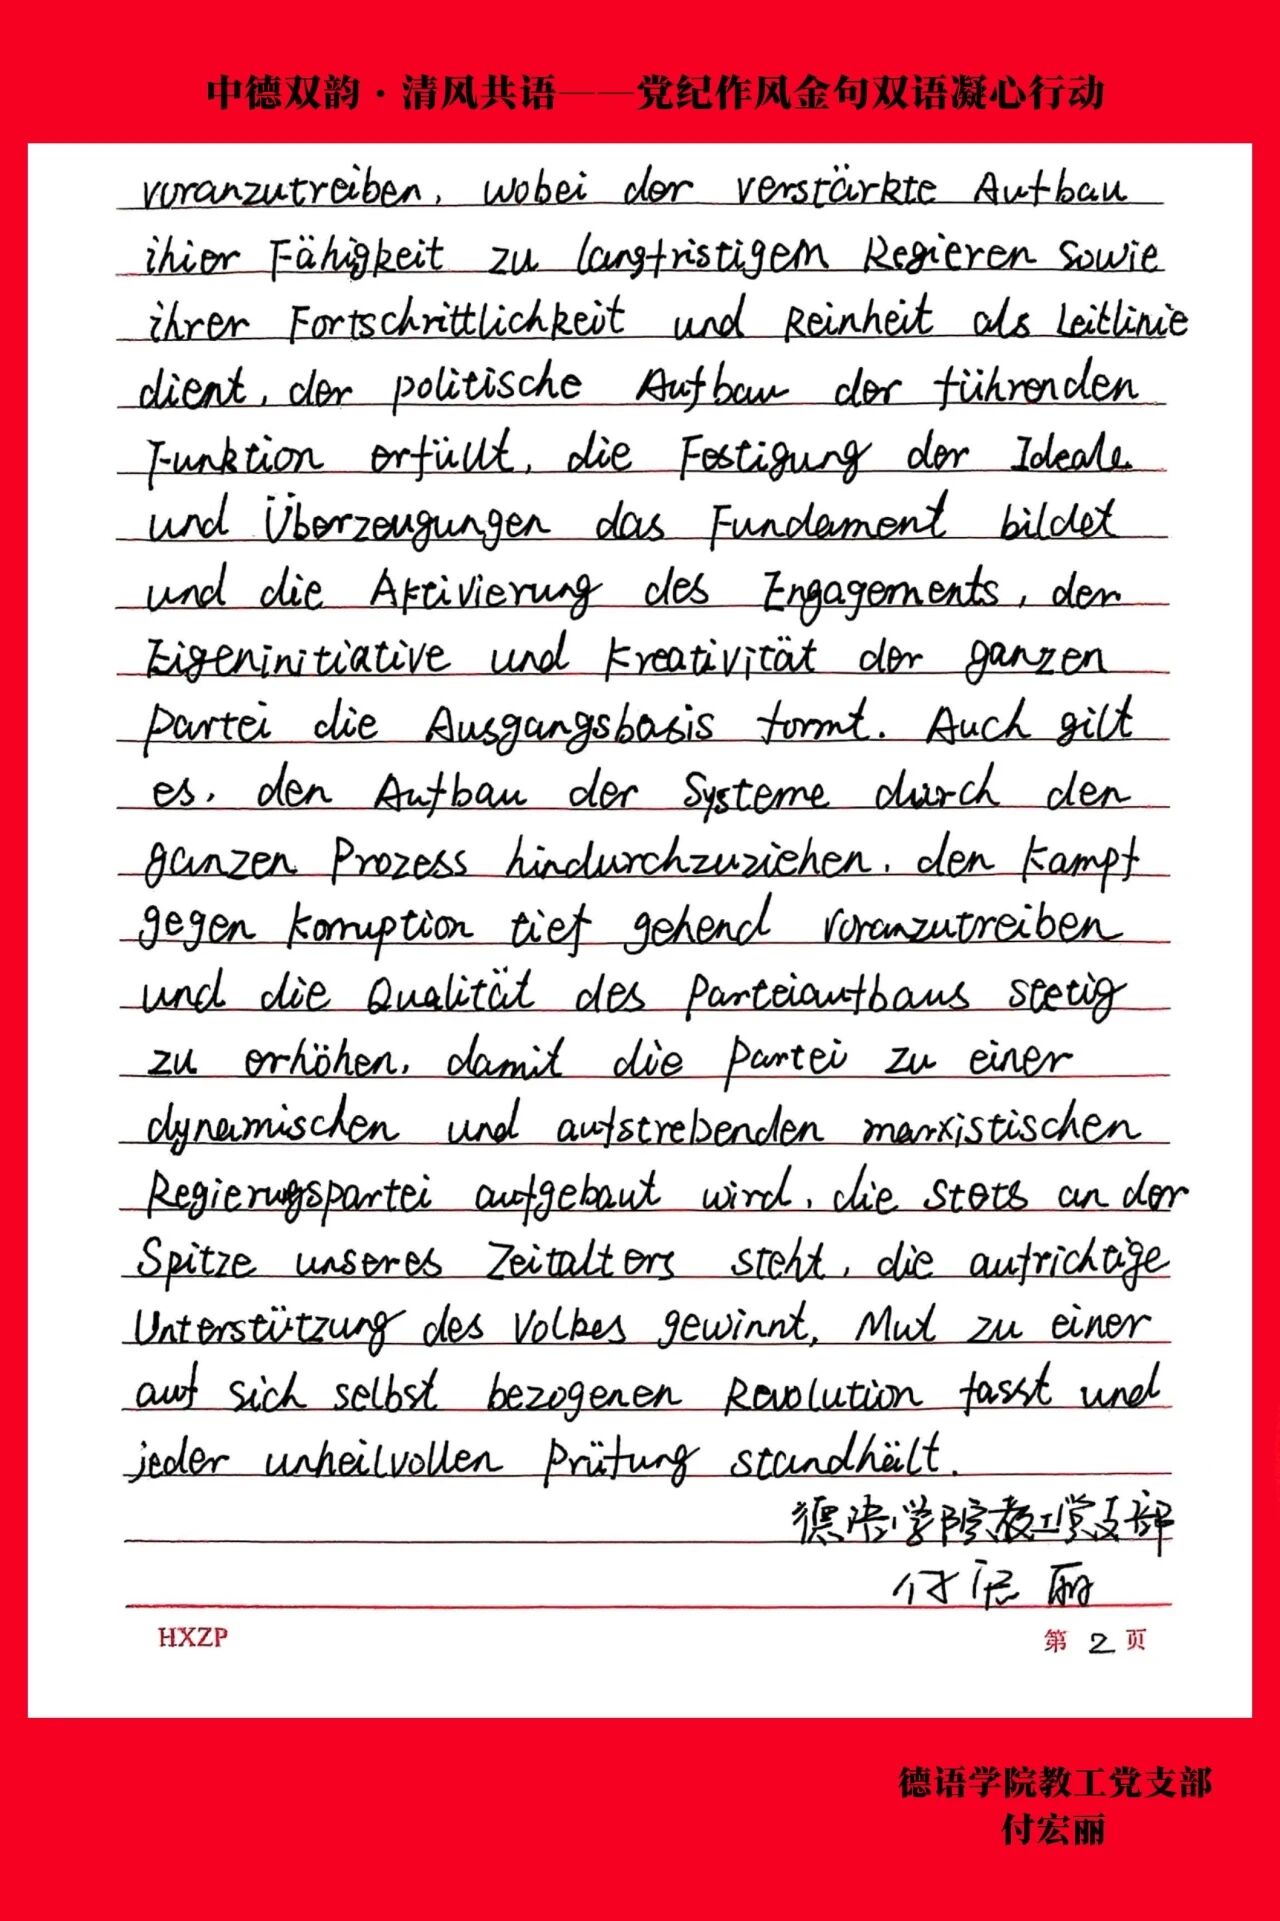 中德双韵·清风共语——党纪作风金句双语凝心行动
voranzutreiben, wobei der verstärkte Aufbau
ihier Fähigkeit zu langfristigem Regieren sowie
ihrer Fortschrittlichkeit und Reinheit als Leitlinie
dient, der politische Aufbau der führenden
Funktion erfüllt, die Festigung der Ideale
und Überzeugungen das Fundament bildet
und die Aktivierung des Engagements, der
Eigeninitiative und Kreativität der ganzen
Partei die Ausgangsbasis formt. Auch gilt
es, den Aufbau der Systeme durch den
ganzen Prozess hindurchzuziehen, den Kampf
gegen Korruption tief gehend voranzutreiben
und die Qualität des Parteiaufbaus stetig
zu erhöhen, damit die Partei zu einer
dynamischen und aufstrebenden marxistischen
Regierugspartei aufgebaut wird, die stets an der
Spitze unseres Zeitalters steht, die aufrichtige
Unterstützung des Volkes gewinnt, Mut zu einer
auf sich selbst bezogenen Revolution fasst und
jeder unheilvollen Prüfung standhält.
德语学院教工党支部
付宏丽
HXZP
第 2 页
德语学院教工党支部
付宏丽